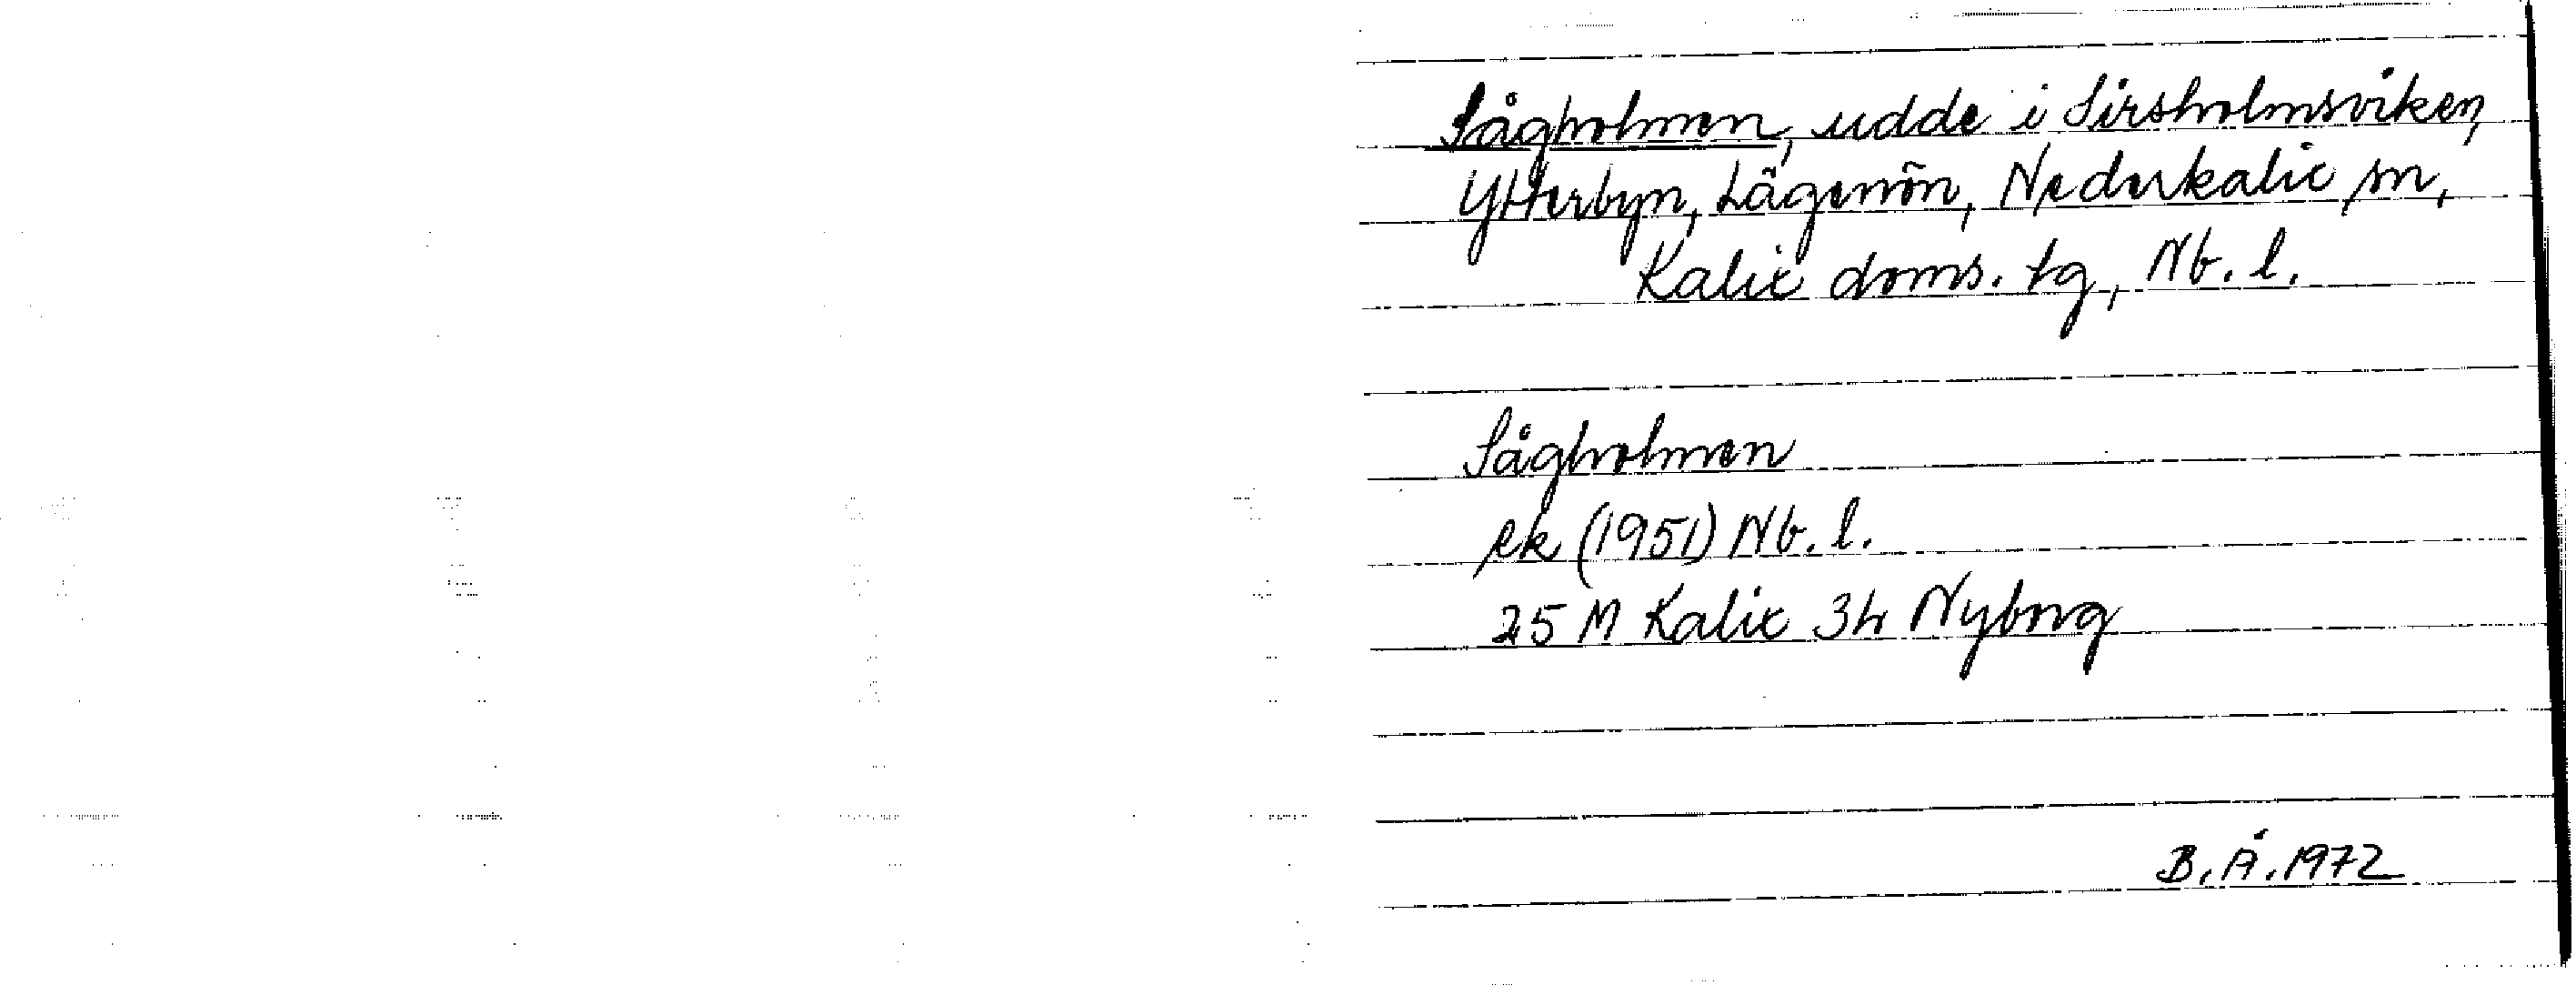 Sågholmen, udde i Sirsholmsviken,
Ytterbyn, Lägenön, Nederkalix sn,
Kalix doms. tg, Nb. l.
Sågholmen
ek (1951) Nb. l.
25 M Kalix 3h Nyborg
B. Å. 1972